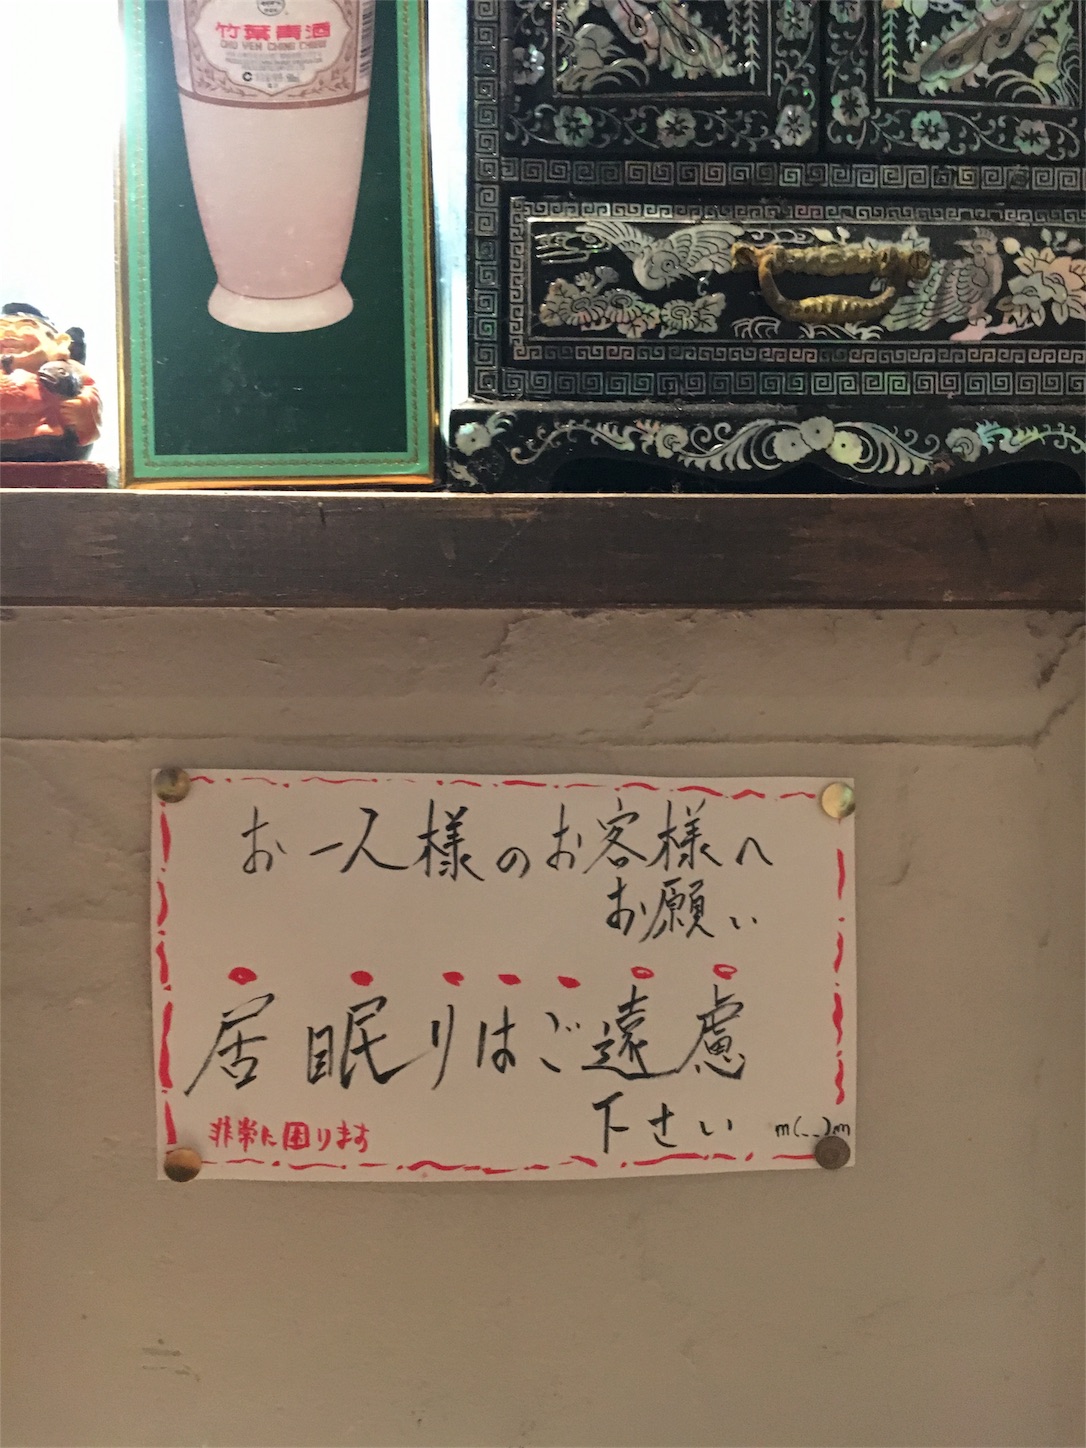 竹葉青酒
CHU YEH CHING CHIEW
お一人様のお客様へ
お願い
居眠りはご遠慮
下さい m(_ _)m
非常に困ります